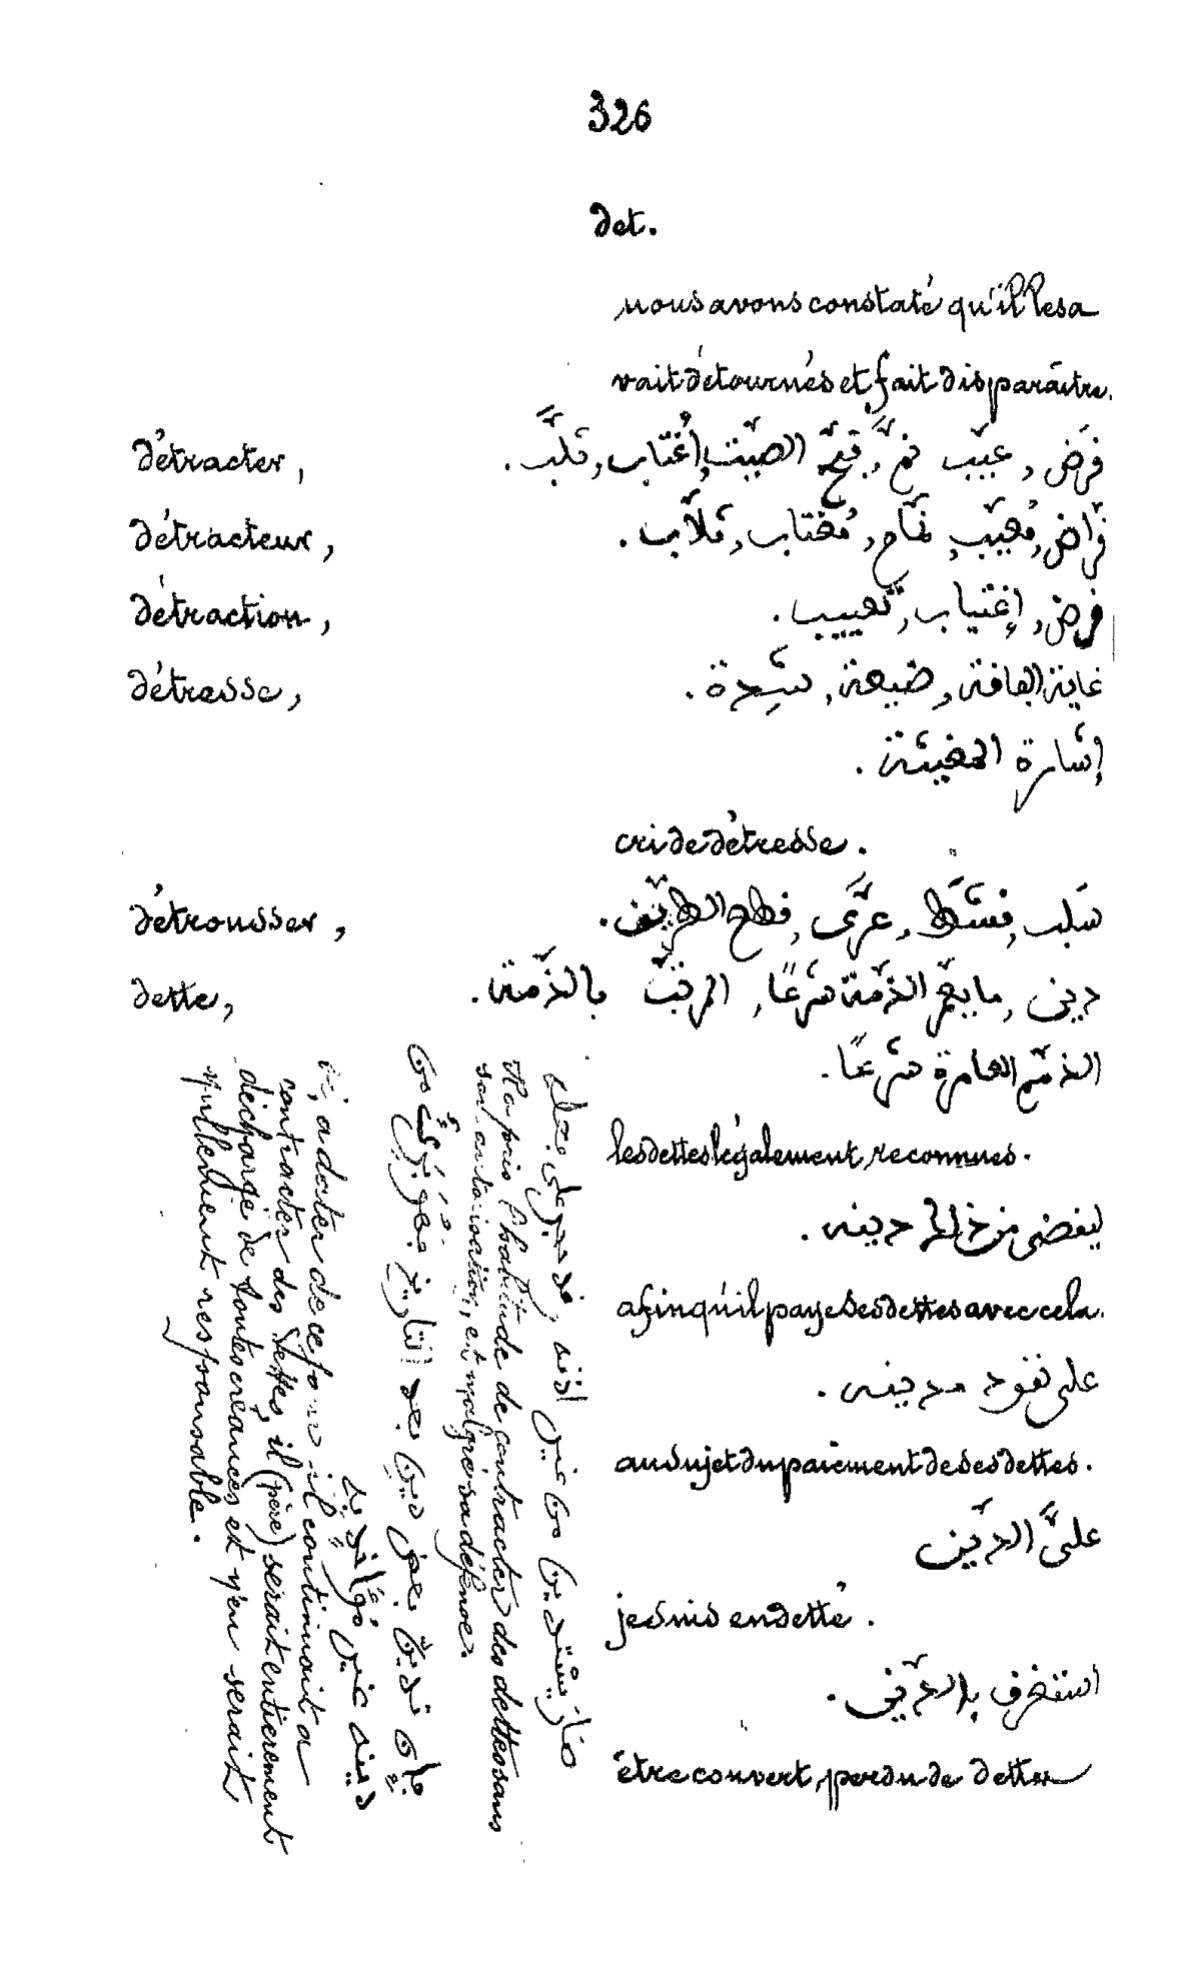 326
det.
nous avons constaté qu'il les a
vait détournés et fait disparaître.
détracter, فرَض, عيّب, ذمّ, قبّح الصّيت, اُغتاب, ثلَب.
détracteur, فرّاض, مُعيّب, ذمّام, مُغتاب, ثلّاب.
détraction, فرض, إغتياب, تعييب.
détresse, غاية الفاقة, ضيعة, شِدة.
إشارة المغيثة.
cri de détresse.
détrousser, سَلَب, فشّط, عرَّى, قطع الطريق.
dette, دين, ما يعمّر الذمّة شرعًا, المرتّب بالذمّة.
الذمم العامرة شرعًا.
les dettes légalement reconnues.
ليقضي من ذالك دينه.
afin qu'il paye ses dettes avec cela.
على نفود مدينه.
au sujet du paiement de ses dettes.
علىَّ الدين
je suis endetté.
استغرق بالدّين.
être couvert, perdu de dettes
صار يستدين من غير اذنه, قد حجر على
Il a pris l'habitude de contracter des dettes sans
son autorisation, et malgré sa défense.
بإن تدين بعض دين بعد التاريخ
دينه غير
à dater de ce jour il continuait à
contracter des dettes, il (père) serait entièrement
déchargé de toutes créances et n'en serait
nullement responsable.